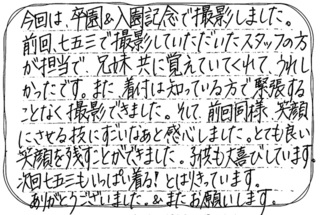 今回は、卒園&入園記念で撮影しました。
前回、七五三で撮影していただいたスタッフの方
が担当で、兄妹共に覚えていてくれて、うれし
かったです。また着付は知っている方で緊張する
ことなく撮影できました。そして、前回同様、笑顔
にさせる技にすごいなあと感心しました。とても良い
笑顔を残すことができました。子供も大喜びしています。
次回七五三もいっぱい着る!とはりきっています。
ありがとうございました。&またお願いします。